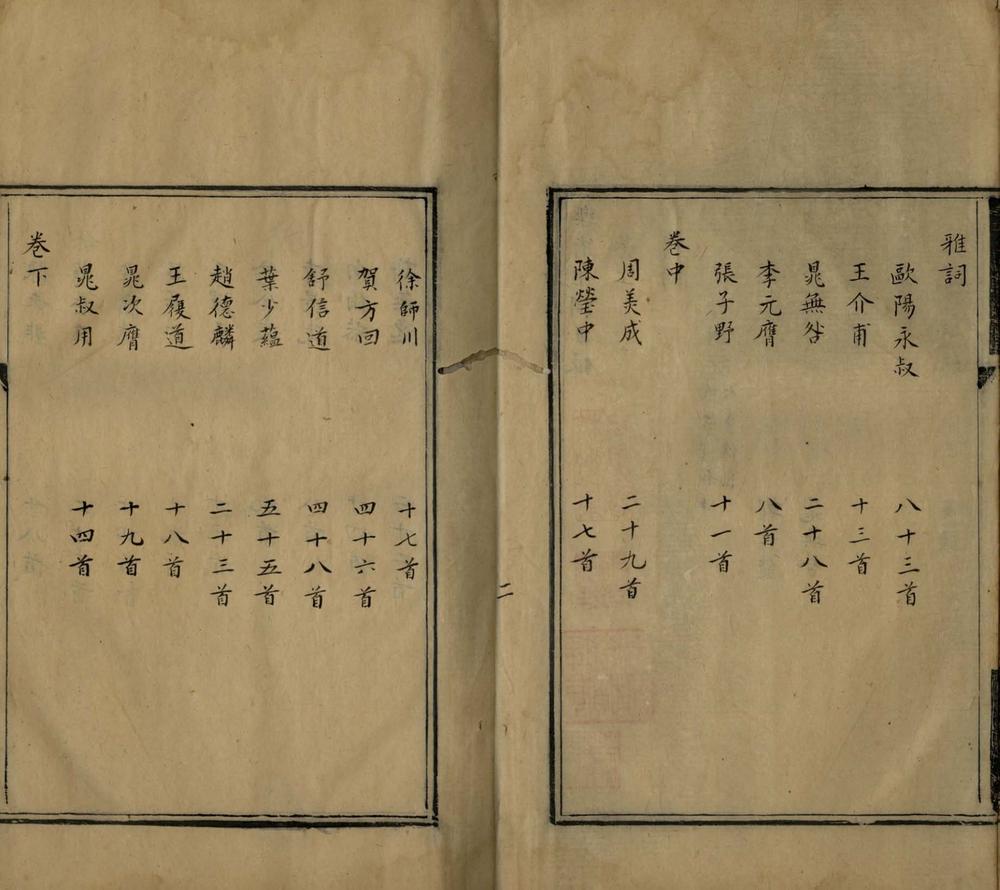 雅詞
歐陽永叔 八十三首
王介甫 十三首
晁無咎 二十八首
李元膺 八首
張子野 十一首
卷中
周美成 二十九首
陳瑩中 十七首
二
徐師川 十七首
賀方回 四十六首
舒信道 四十八首
葉少蘊 五十五首
趙德麟 二十三首
王履道 十八首
晁次膺 十九首
晁叔用 十四首
卷下